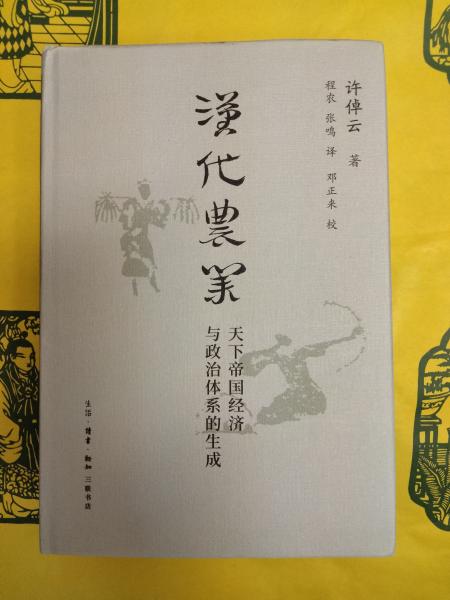 许倬云 著
程农 张鸣 译 邓正来 校
漢代農業
天下帝国经济
与政治体系的生成
生活·讀書·新知 三联书店